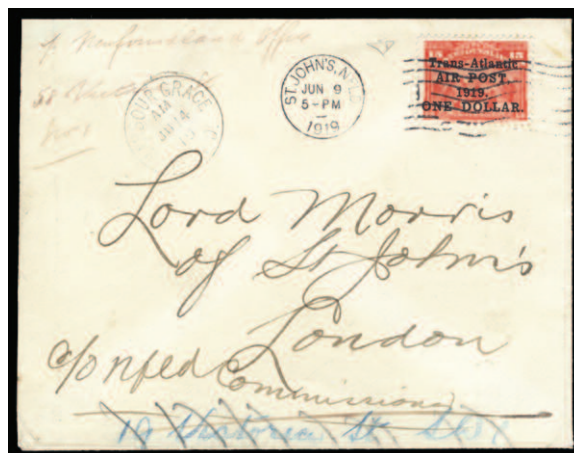 Newfoundland Office
58 Victoria St
HARBOUR GRACE
AM
JU 14
19
ST. JOHN'S, NFLD
JUN 9
5-PM
1919
15 15
Trans-Atlantic
AIR POST.
1919.
ONE DOLLAR.
Lord Morris
of St John's
London
c/o Nfld Commissioner
19 Victoria St